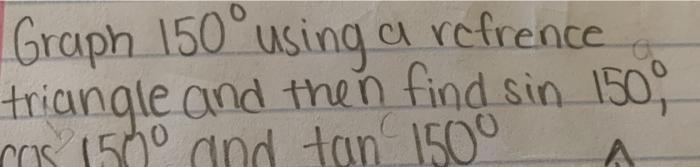 Graph 150° using a refrence
triangle and then find sin 150°,
cos 150° and tan 150°